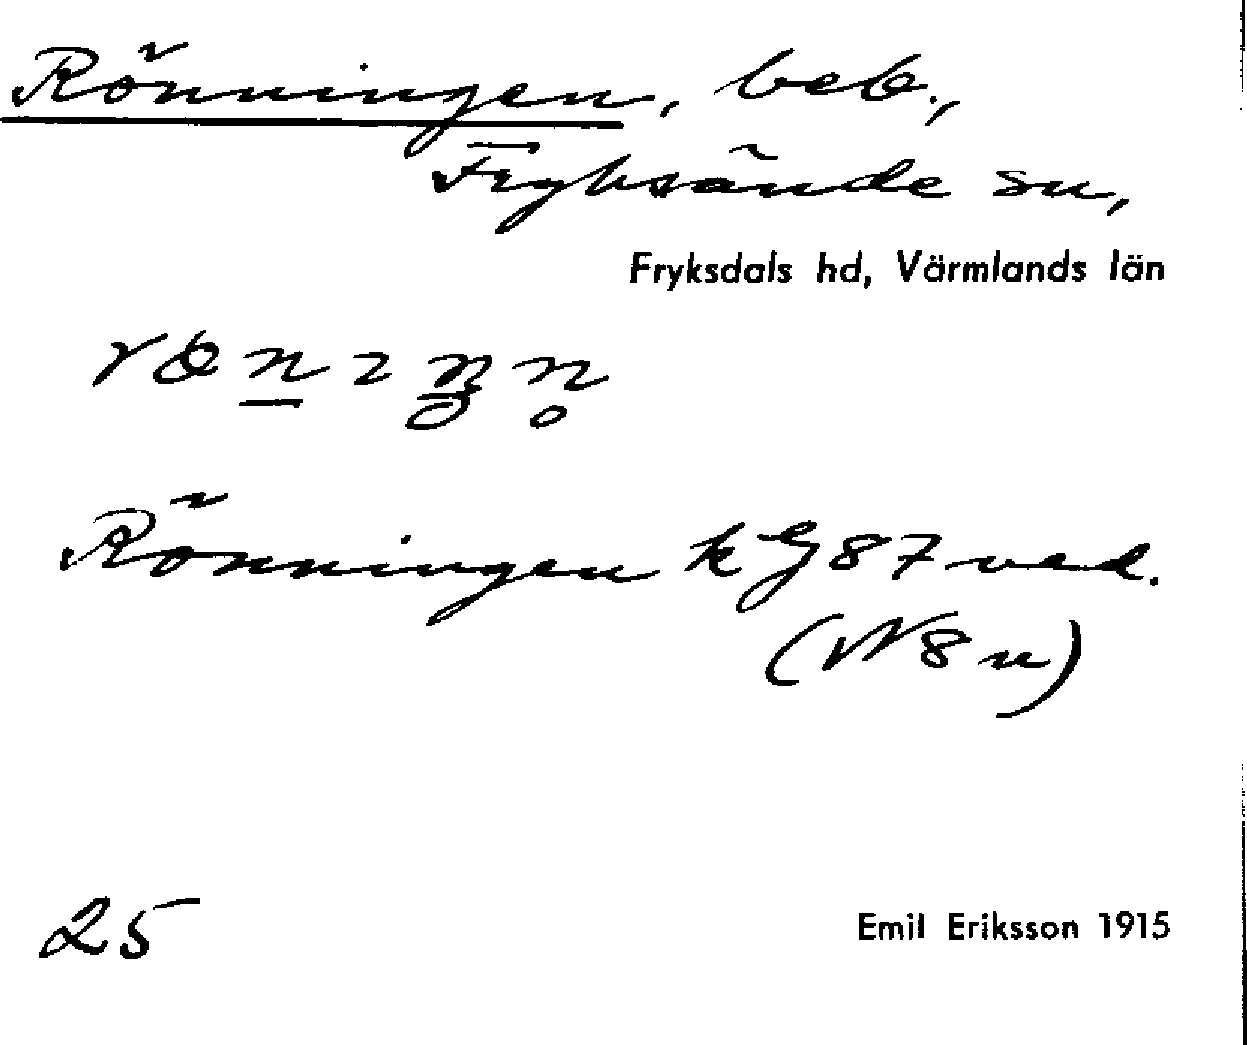 Rönningen, beb.,
Fryksände sn,
Fryksdals hd, Värmlands län
Rönningen k G 87 ved.
(N 8 n)
25
Emil Eriksson 1915